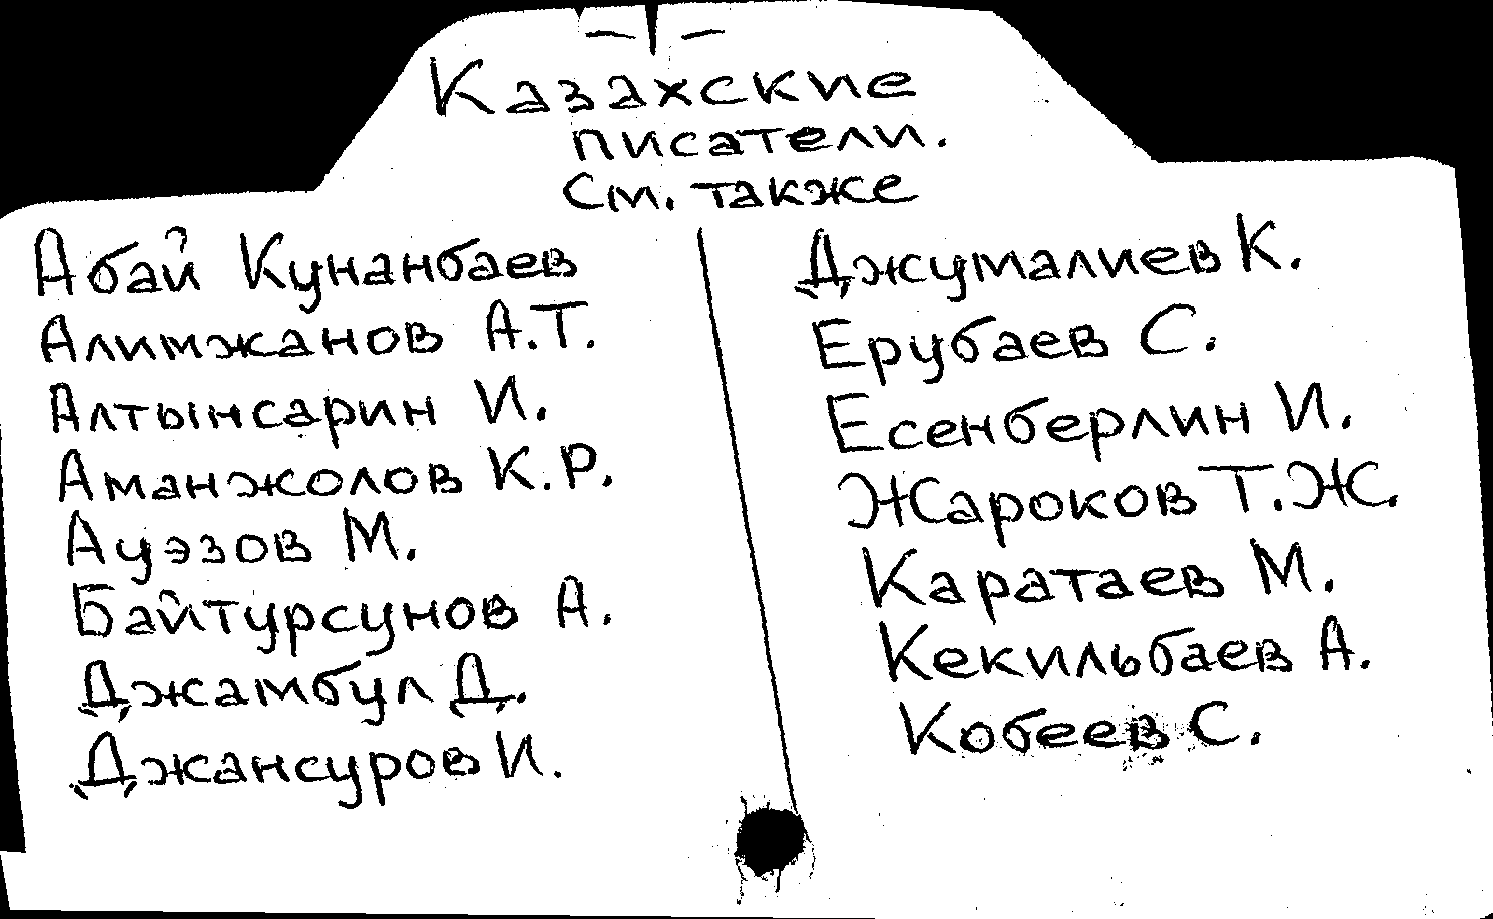 Казахские
писатели.
См. также
Абай Кунанбаев
Алимжанов А.Т.
Алтынсарин И.
Аманжолов К.Р.
Ауэзов М.
Байтурсунов А.
Джамбул Д.
Джансуров И.
Джумалиев К.
Ерубаев С.
Есенберлин И.
Жароков Т.Ж.
Каратаев М.
Кекильбаев А.
Кобеев С.